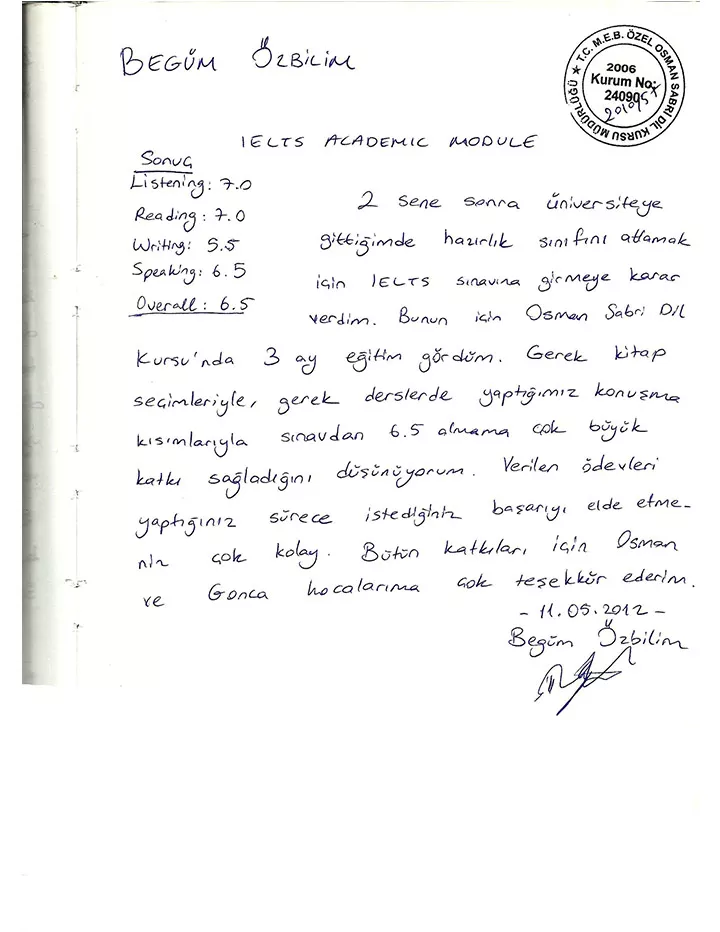 BEGÜM ÖZBİLİM
★ T.C. M.E.B. ÖZEL OSMAN SABRİ DİL KURSU MÜDÜRLÜĞÜ
2006
Kurum No:
24090
IELTS ACADEMIC MODULE
Sonuç
Listening: 7.0
Reading: 7.0
Writing: 5.5
Speaking: 6.5
Overall: 6.5
2 sene sonra üniversiteye
gittiğimde hazırlık sınıfını atlamak
için IELTS sınavına girmeye karar
verdim. Bunun için Osman Sabri Dil
Kursu'nda 3 ay eğitim gördüm. Gerek kitap
seçimleriyle, gerek derslerde yaptığımız konuşma
kısımlarıyla sınavdan 6.5 almama çok büyük
katkı sağladığını düşünüyorum. Verilen ödevleri
yaptığınız sürece istediğiniz başarıyı elde etme-
niz çok kolay. Bütün katkıları için Osman
ve Gonca hocalarıma çok teşekkür ederim.
- 11.05.2012 -
Begüm Özbilim